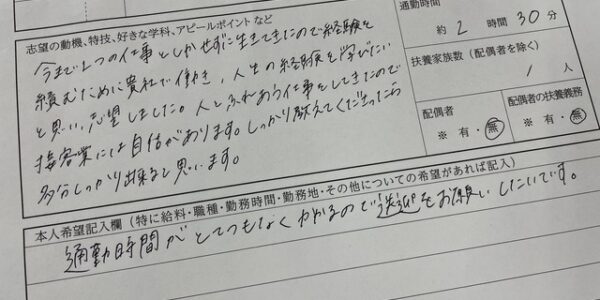 志望の動機、特技、好きな学科、アピールポイントなど
今まで1つの仕事としかせずに生きてきたので経験を
積むために貴社で働き、人生の経験を学びたい
と思い、志望しました。人とふれあう仕事をしてきたので
接客業には自信があります。しっかり教えてくださったら
多分しっかり出来ると思います。
通勤時間
約 2 時間 30 分
扶養家族数（配偶者を除く）
1 人
配偶者
※ 有・無
配偶者の扶養義務
※ 有・無
本人希望記入欄（特に給料・職種・勤務時間・勤務地・その他についての希望があれば記入）
通勤時間がとてつもなくかかるので送迎をお願いしたいです。